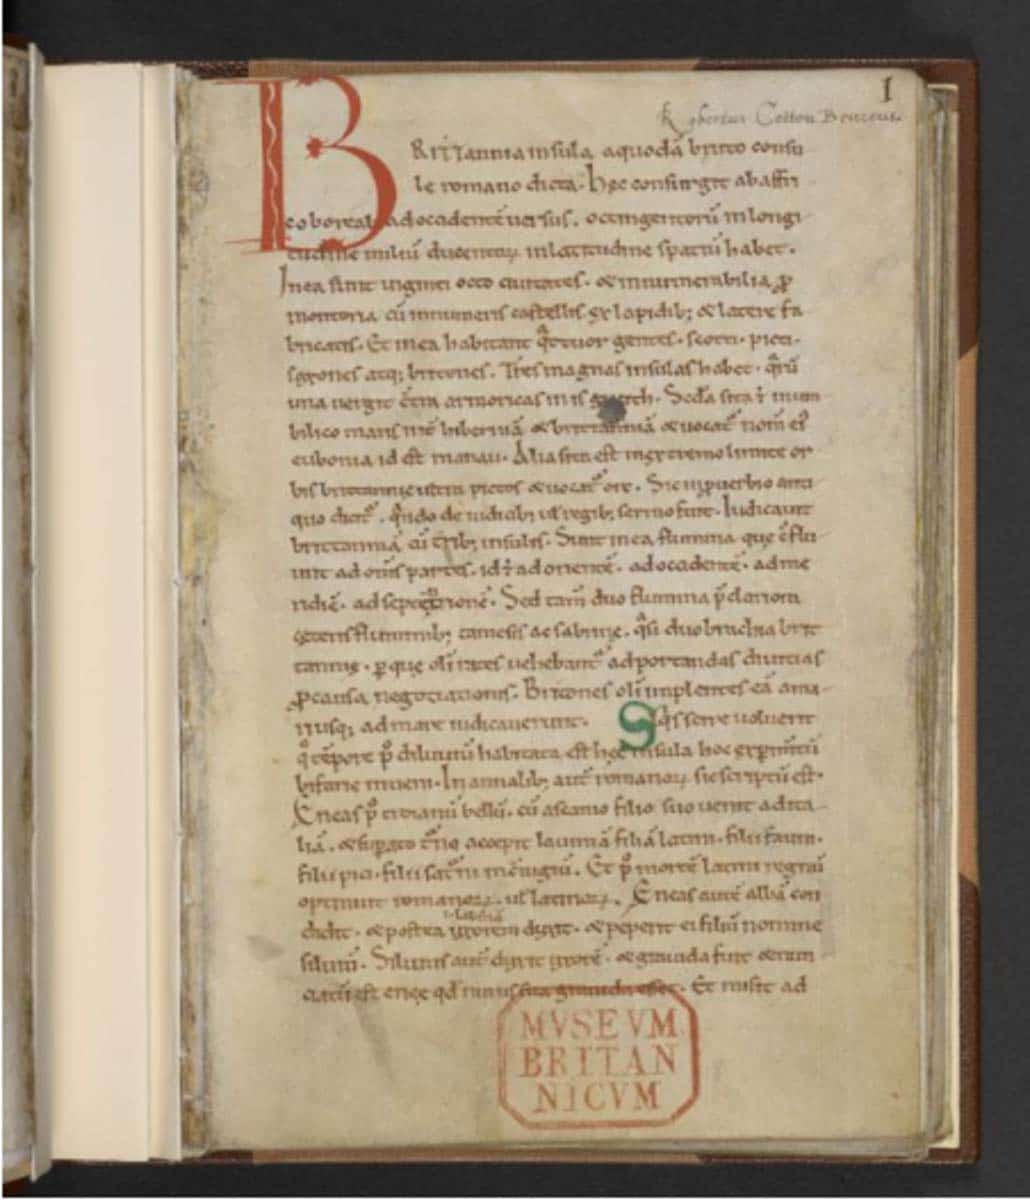 1
Robertus Cotton Bruceus
BRITTannia insula, a quodā britto consu
le romano dicta. hęc consurgit ab affri
co boreali ad occidentē uersus. octingentorū in longi
tudine miliū ducentoꝝ in latitudine spatiū habet.
In ea sunt uiginti octo ciuitates. & innumerabilia ꝓ
montoria cū innumeris castellis ex lapidib; & latere fa
bricatis. Et in ea habitant quattuor gentes. scotti. picti.
saxones atq; brittones. Tres magnas insulas habet. quarū
una uergit contra armoricas Scd̄a sita ē in um
bilico maris int̄ hiberniā & brittanniā & uocat̄ nom̄ ei᾽
eubonia id est manau. Alia sita est in extremo limite or
bis brittannię ultra pictos & uocat̄ orc. Sic in ꝓuerbio anti
quo dicit̄. quando de iudicib; uł regib; sermo fuit. Iudicauit
brittanniā cū trib; insulis. Sunt in ea flumina que flu
unt ad om̄s partes. id ē ad orientē. ad occidentē. ad me
ridiē. ad septētrionē. Sed tam̄ duo flumina p̄clariora
cęteris fluminib; tamesis ac sabrinę. quasi duo brachia brit
tannię. ꝑ que olī rates uehebant̄ ad portandas diuicias
ꝓ causa negotiationis. Brittones olī implentes eā a ma
ri usq; ad mare iudicauerunt. Siq̇s scire uoluerit
quo tēpore p̄ diluuiū habitata est hęc insula hoc experimētū
bifarie inueni. In annalib; aut̄ romanoꝝ sic scriptū est.
Eneas p᾽ troianū bellū. cū ascanio filio suo uenit ad ita
liā. & supato turno accepit lauinā filiā latini. filii fauni.
filii pici. filii saturni in cōiugiū. Et p᾽ mortē latini regnū
optinuit romanoꝝ. uł latinoꝝ. Eneas autē albā con
didit. & postea uxorem duxit. & peperit ei filiū nomine
siluiū. Siluius aut̄ duxit uxorē. & grauida fuit & nun
ciatū est enęę qd̄ nurus sua grauida esset. Et misit ad
MVSEVM
BRITAN
NICVM